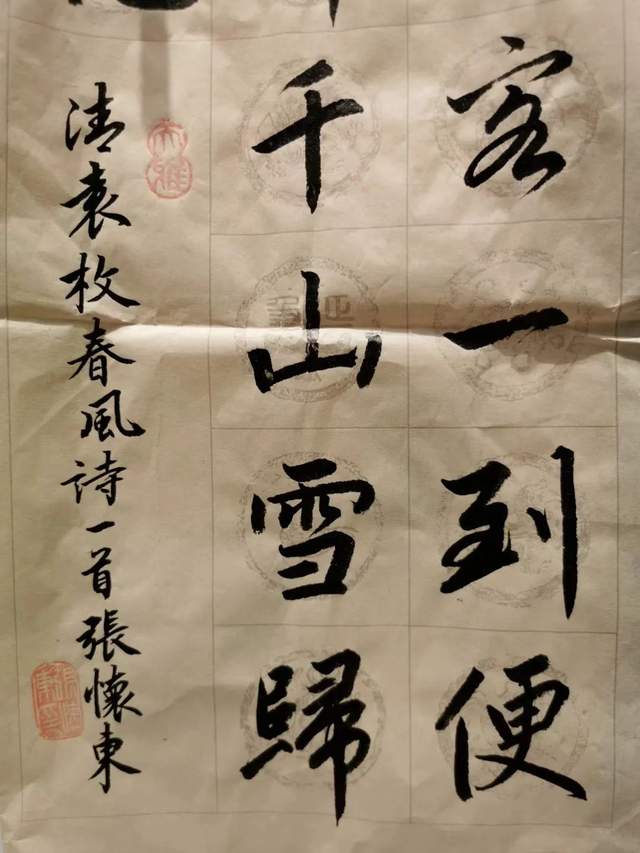 客一到便
千山雪歸
清袁枚春風詩一首張懷東